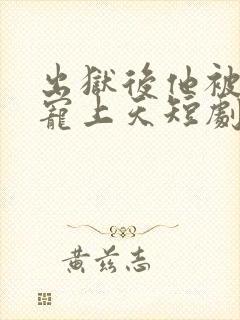 出獄後他被
寵上天短劇
黃茲志